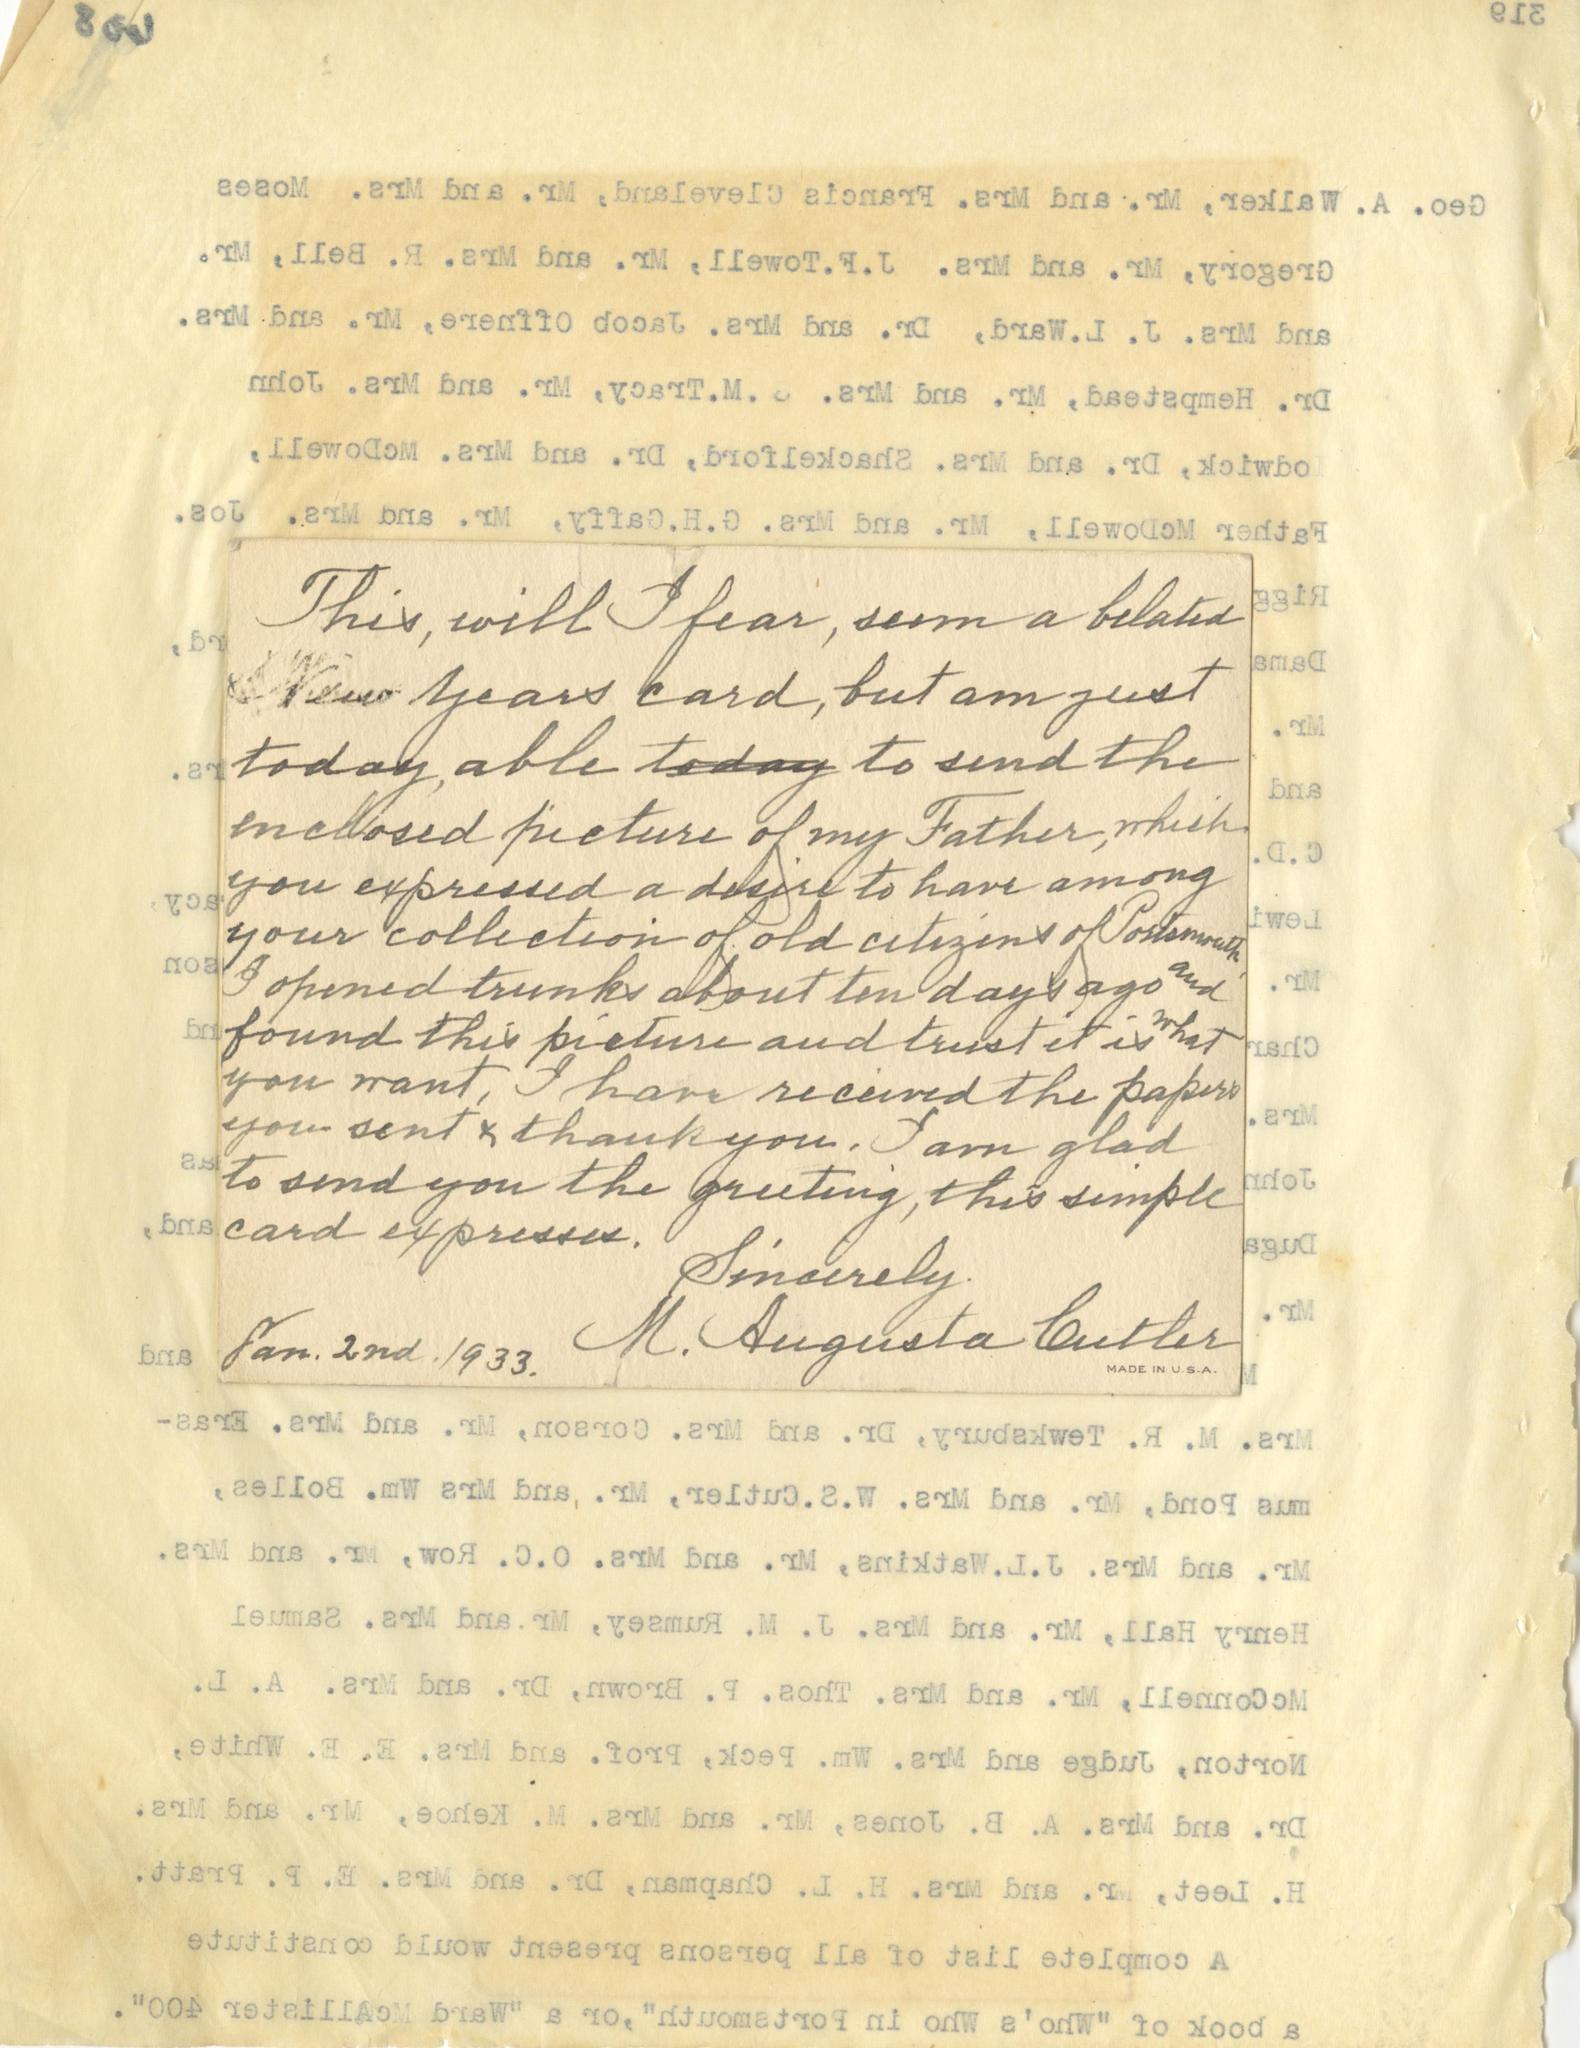 319
Geo. A. Walker, Mr. and Mrs. Francis Cleveland, Mr. and Mrs. Moses
Gregory, Mr. and Mrs. J.F.Towell, Mr. and Mrs. R. Bell, Mr.
and Mrs. J. L.Ward, Dr. and Mrs. Jacob Offnere, Mr. and Mrs.
Dr. Hempstead, Mr. and Mrs. .M.Tracy, Mr. and Mrs. John
Lodwick, Dr. and Mrs. Shackelford, Dr. and Mrs. McDowell,
Father McDowell, Mr. and Mrs. G.H.Gaffy, Mr. and Mrs. Jos.
This, will I fear, seem a belated
New Years card, but am just
today, able today to send the
enclosed picture of my Father, which
you expressed a desire to have among
your collection of old citizens of Portsmouth.
I opened trunks about ten days ago and
found this picture and trust it is what
you want, I have received the papers
you sent & thank you. I am glad
to send you the greeting, this simple
card expresses.
Sincerely.
M. Augusta Cutler
Jan. 2nd. 1933.
MADE IN U.S.A.
Mrs. M. R. Tewksbury, Dr. and Mrs. Corson, Mr. and Mrs. Eras-
mus Pond, Mr. and Mrs. W.S.Cutler, Mr. and Mrs Wm. Bolles,
Mr. and Mrs. J.L.Watkins, Mr. and Mrs. O.C. Row, Mr. and Mrs.
Henry Hall, Mr. and Mrs. J. M. Rumsey, Mr. and Mrs. Samuel
McConnell, Mr. and Mrs. Thos. P. Brown, Dr. and Mrs. A. L.
Norton, Judge and Mrs. Wm. Peck, Prof. and Mrs. E. E. White,
Dr. and Mrs. A. B. Jones, Mr. and Mrs. M. Kehoe, Mr. and Mrs.
H. Leet, Mr. and Mrs. H. L. Chapman, Dr. and Mrs. E. P. Pratt.
A complete list of all persons present would constitute
a book of "Who's Who in Portsmouth",or a "Ward McAllister 400".